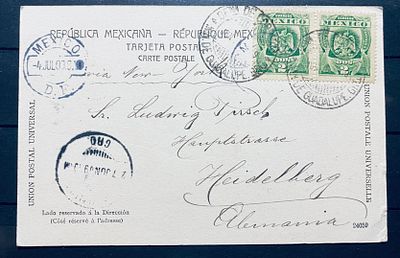 REPÚBLICA MEXICANA - RÉPUBLIQUE MEXI
TARJETA POSTAL
CARTE POSTALE
MEXICO
MEXICO
MEXICO
D. F.
via New-York
Sr. Ludwig
Hauptstrasse
Heidelberg
Alemania
UNION POSTAL UNIVERSAL
UNION POSTALE UNIVERSELLE
GRO.
Lado reservado á la Dirección
(Côté réservé à l'adresse)
24050